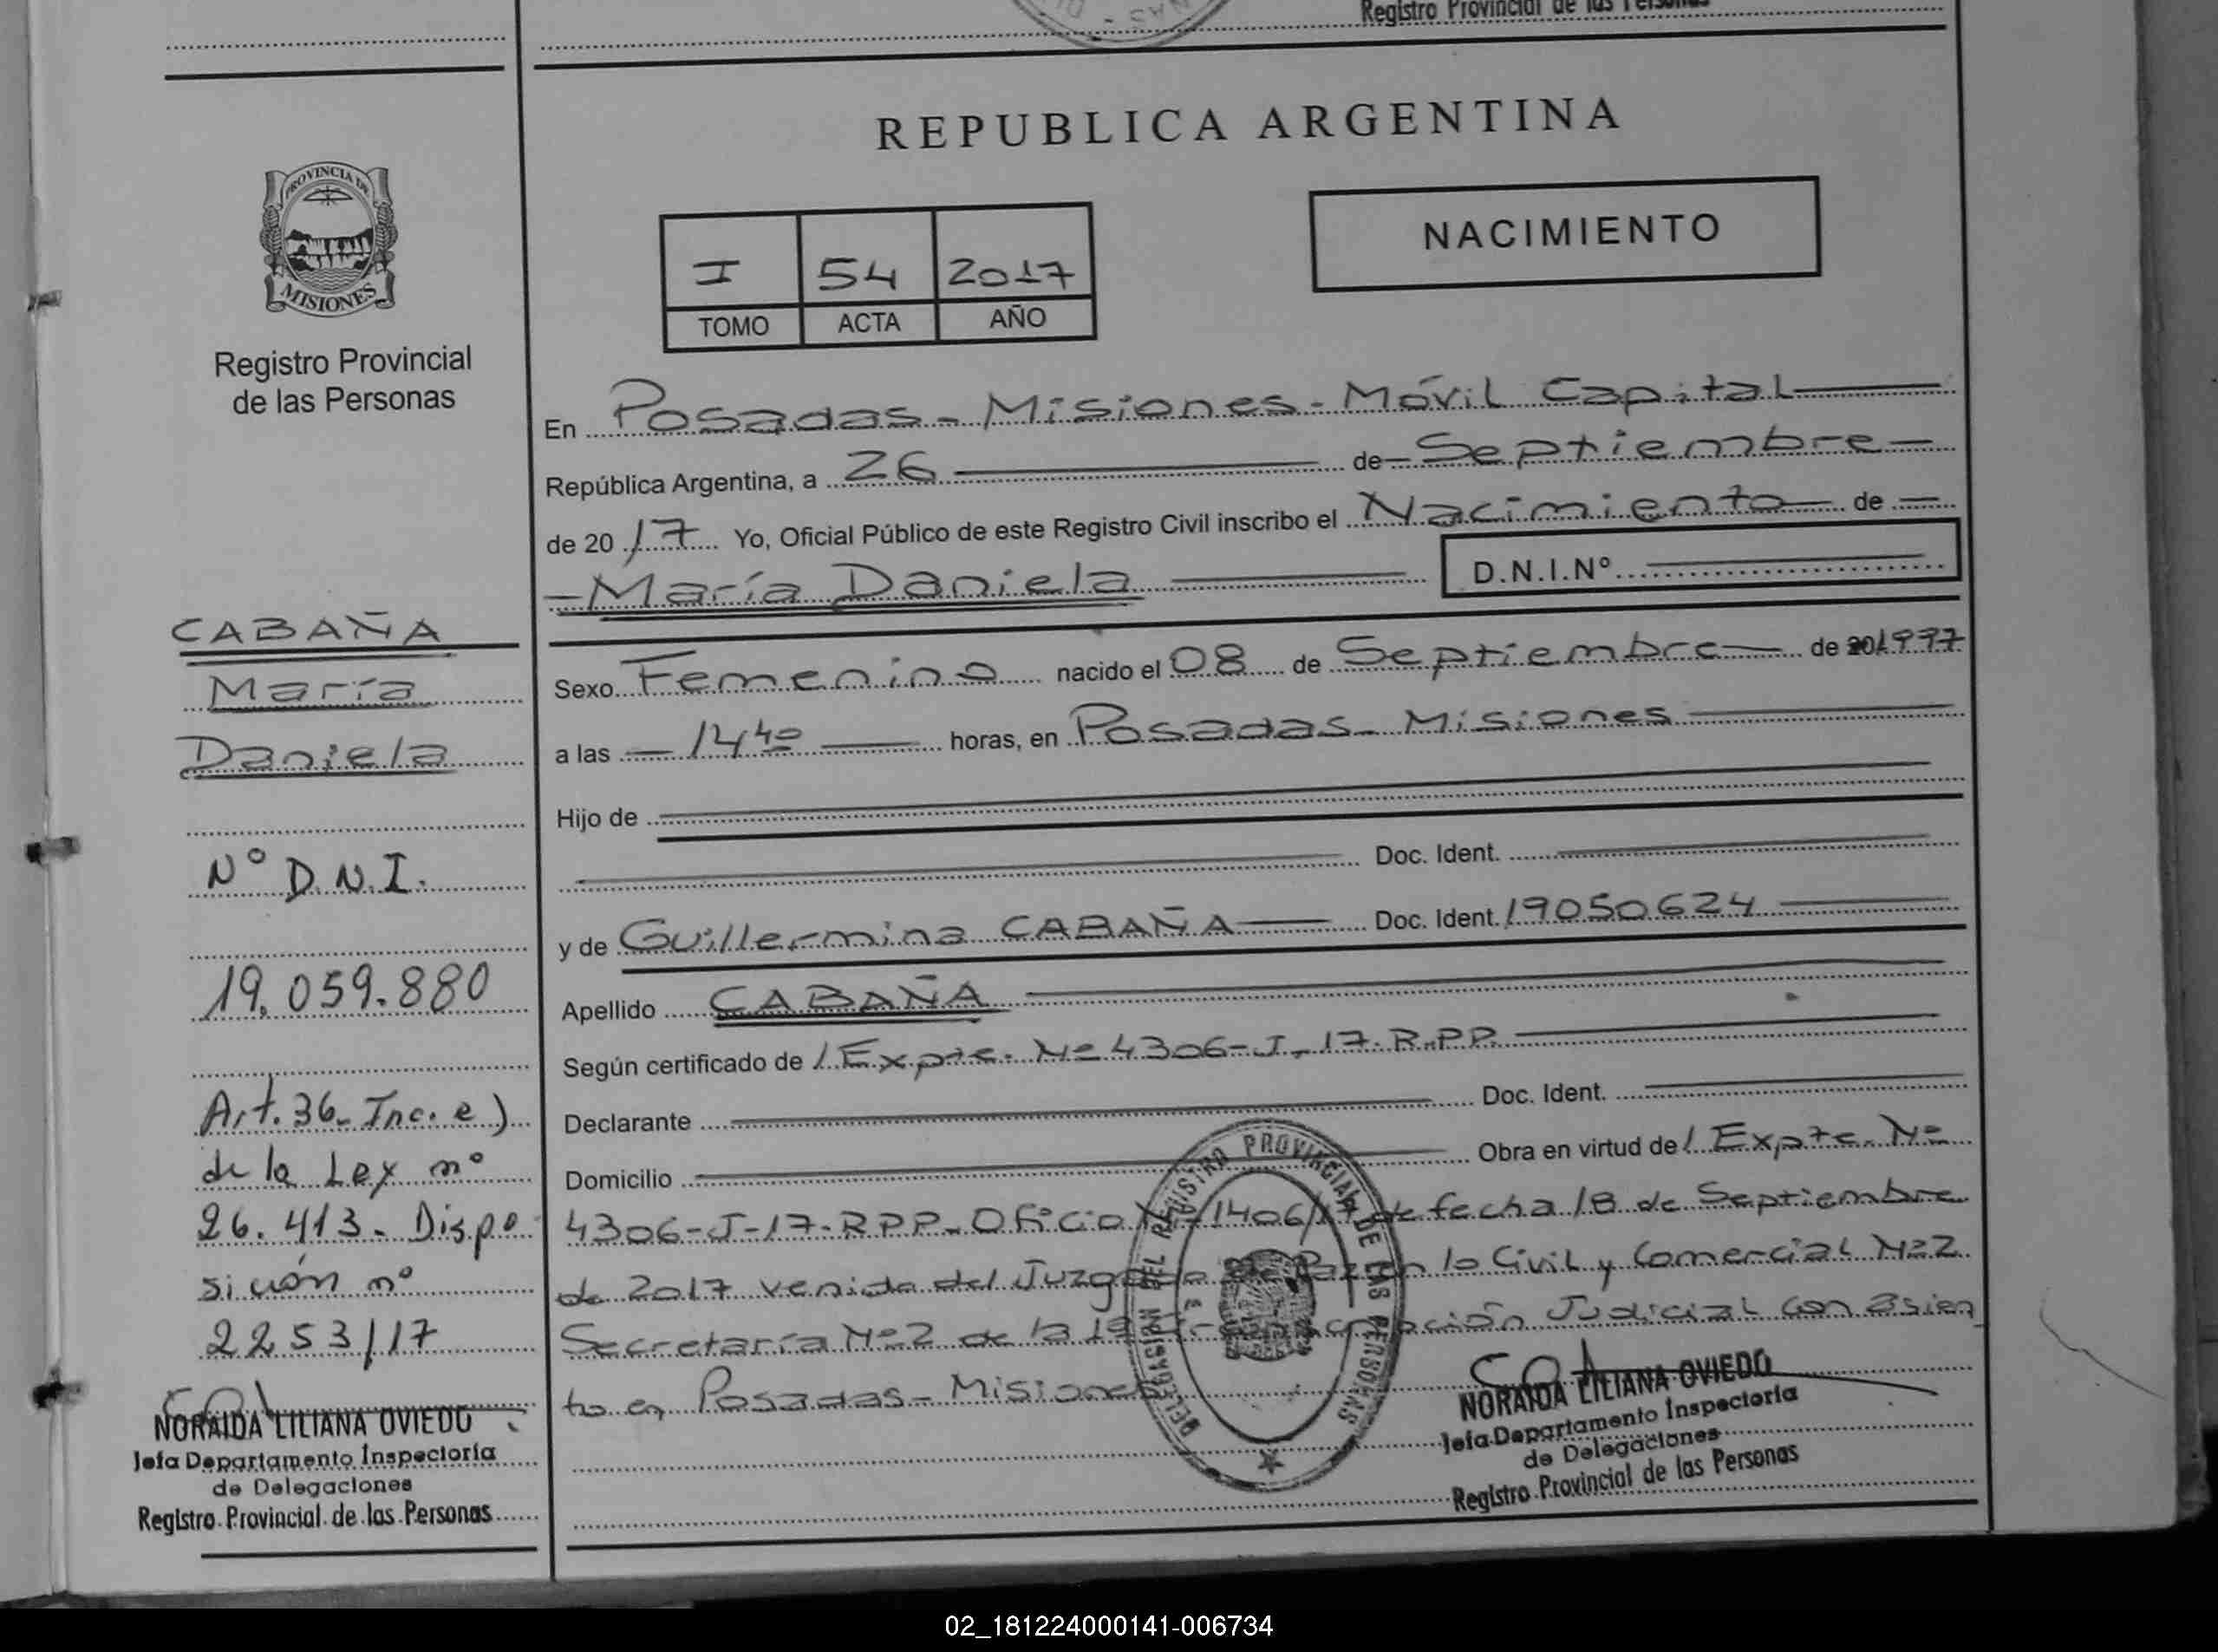 Registro Provincial de las Personas
REPUBLICA ARGENTINA
PROVINCIA DE
MISIONES
Registro Provincial
de las Personas
NACIMIENTO
I 54 2017
TOMO ACTA AÑO
En Posadas - Misiones - Móvil Capital
República Argentina, a 26 de Septiembre
de 20 17 Yo, Oficial Público de este Registro Civil inscribo el Nacimiento de
María Daniela D.N.I.Nº
CABAÑA
María
Daniela
Nº D.N.I.
19.059.880
Art. 36- Inc. e)
de la Ley nº
26.413- Dispo-
sición nº
2253/17
NORAIDA LILIANA OVIEDO
Jefa Departamento Inspectoría
de Delegaciones
Registro Provincial de las Personas
Sexo Femenino nacido el 08 de Septiembre de 1997
a las 14 40 horas, en Posadas - Misiones
Hijo de
Doc. Ident.
y de Guillermina CABAÑA Doc. Ident. 19050624
Apellido CABAÑA
Según certificado de / Expte. Nº 4306-J-17-R.P.P.
Declarante Doc. Ident.
Domicilio Obra en virtud de / Expte. Nº
4306-J-17-RPP- Oficio Nº 1406/17 de fecha 18 de Septiembre
de 2017 venida del Juzgado de Paz en lo Civil y Comercial Nº2
Secretaría Nº2 de la 1ª Circunscripción Judicial con asien
to en Posadas - Misiones
REGISTRO PROVINCIAL DE LAS PERSONAS
NORAIDA LILIANA OVIEDO
Jefa Departamento Inspectoría
de Delegaciones
Registro Provincial de las Personas
02_181224000141-006734